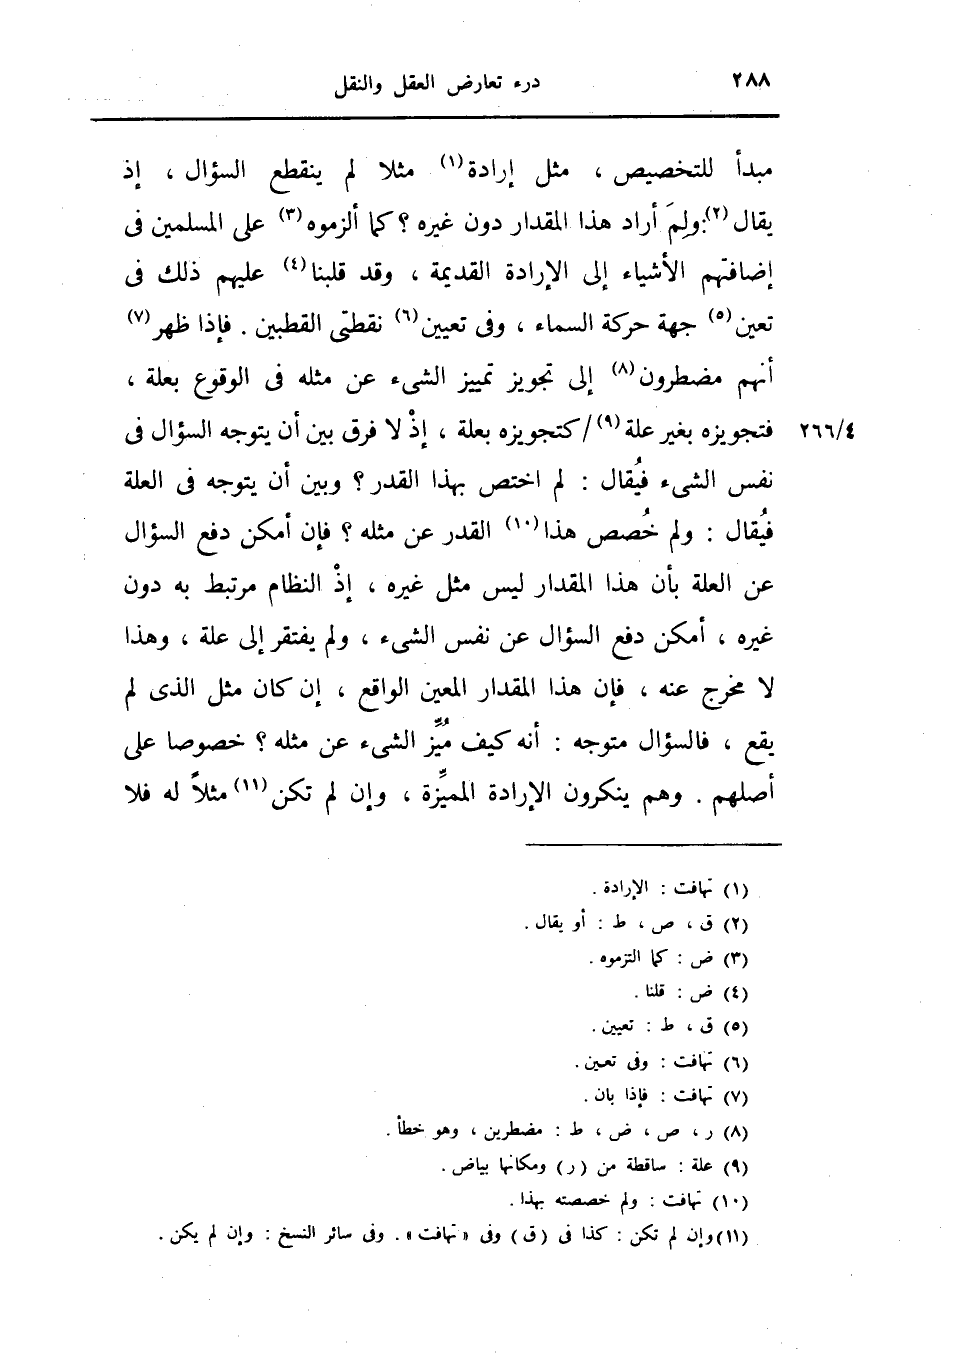 ٢٨٨ درء تعارض العقل والنقل
مبدأ للتخصيص ، مثل إرادة(١) مثلا لم ينقطع السؤال ، إذ
يقال(٢):ولِمَ أراد هذا المقدار دون غيره ؟ كما ألزموه(٣) على المسلمين فى
إضافتهم الأشياء إلى الإرادة القديمة ، وقد قلبنا(٤) عليهم ذلك فى
تعين(٥) جهة حركة السماء ، وفى تعيين(٦) نقطتى القطبين . فإذا ظهر(٧)
أنهم مضطرون(٨) إلى تجويز تمييز الشىء عن مثله فى الوقوع بعلة ،
فتجويزه بغير علة(٩)/كتجويزه بعلة ، إذْ لا فرق بين أن يتوجه السؤال فى ٢٦٦/٤
نفس الشىء فيُقال : لم اختص بهذا القدر ؟ وبين أن يتوجه فى العلة
فيُقال : ولم خُصص هذا(١٠) القدر عن مثله ؟ فإن أمكن دفع السؤال
عن العلة بأن هذا المقدار ليس مثل غيره ، إذْ النظام مرتبط به دون
غيره ، أمكن دفع السؤال عن نفس الشىء ، ولم يفتقر إلى علة ، وهذا
لا مخرج عنه ، فإن هذا المقدار المعين الواقع ، إن كان مثل الذى لم
يقع ، فالسؤال متوجه : أنه كيف مُيِّز الشىء عن مثله ؟ خصوصا على
أصلهم . وهم ينكرون الإرادة المميِّزة ، وإن لم تكن(١١) مثلاً له فلا
(١) تهافت : الإرادة .
(٢) ق ، ص ، ط : أو يقال .
(٣) ض : كما التزموه .
(٤) ض : قلنا .
(٥) ق ، ط : تعيين .
(٦) تهافت : وفى تعين .
(٧) تهافت : فإذا بان .
(٨) ر ، ص ، ض ، ط : مضطرين ، وهو خطأ .
(٩) علة : ساقطة من (ر) ومكانها بياض .
(١٠) تهافت : ولم خصصته بهذا .
(١١) وإن لم تكن : كذا فى (ق) وفى «تهافت» . وفى سائر النسخ : وإن لم يكن .